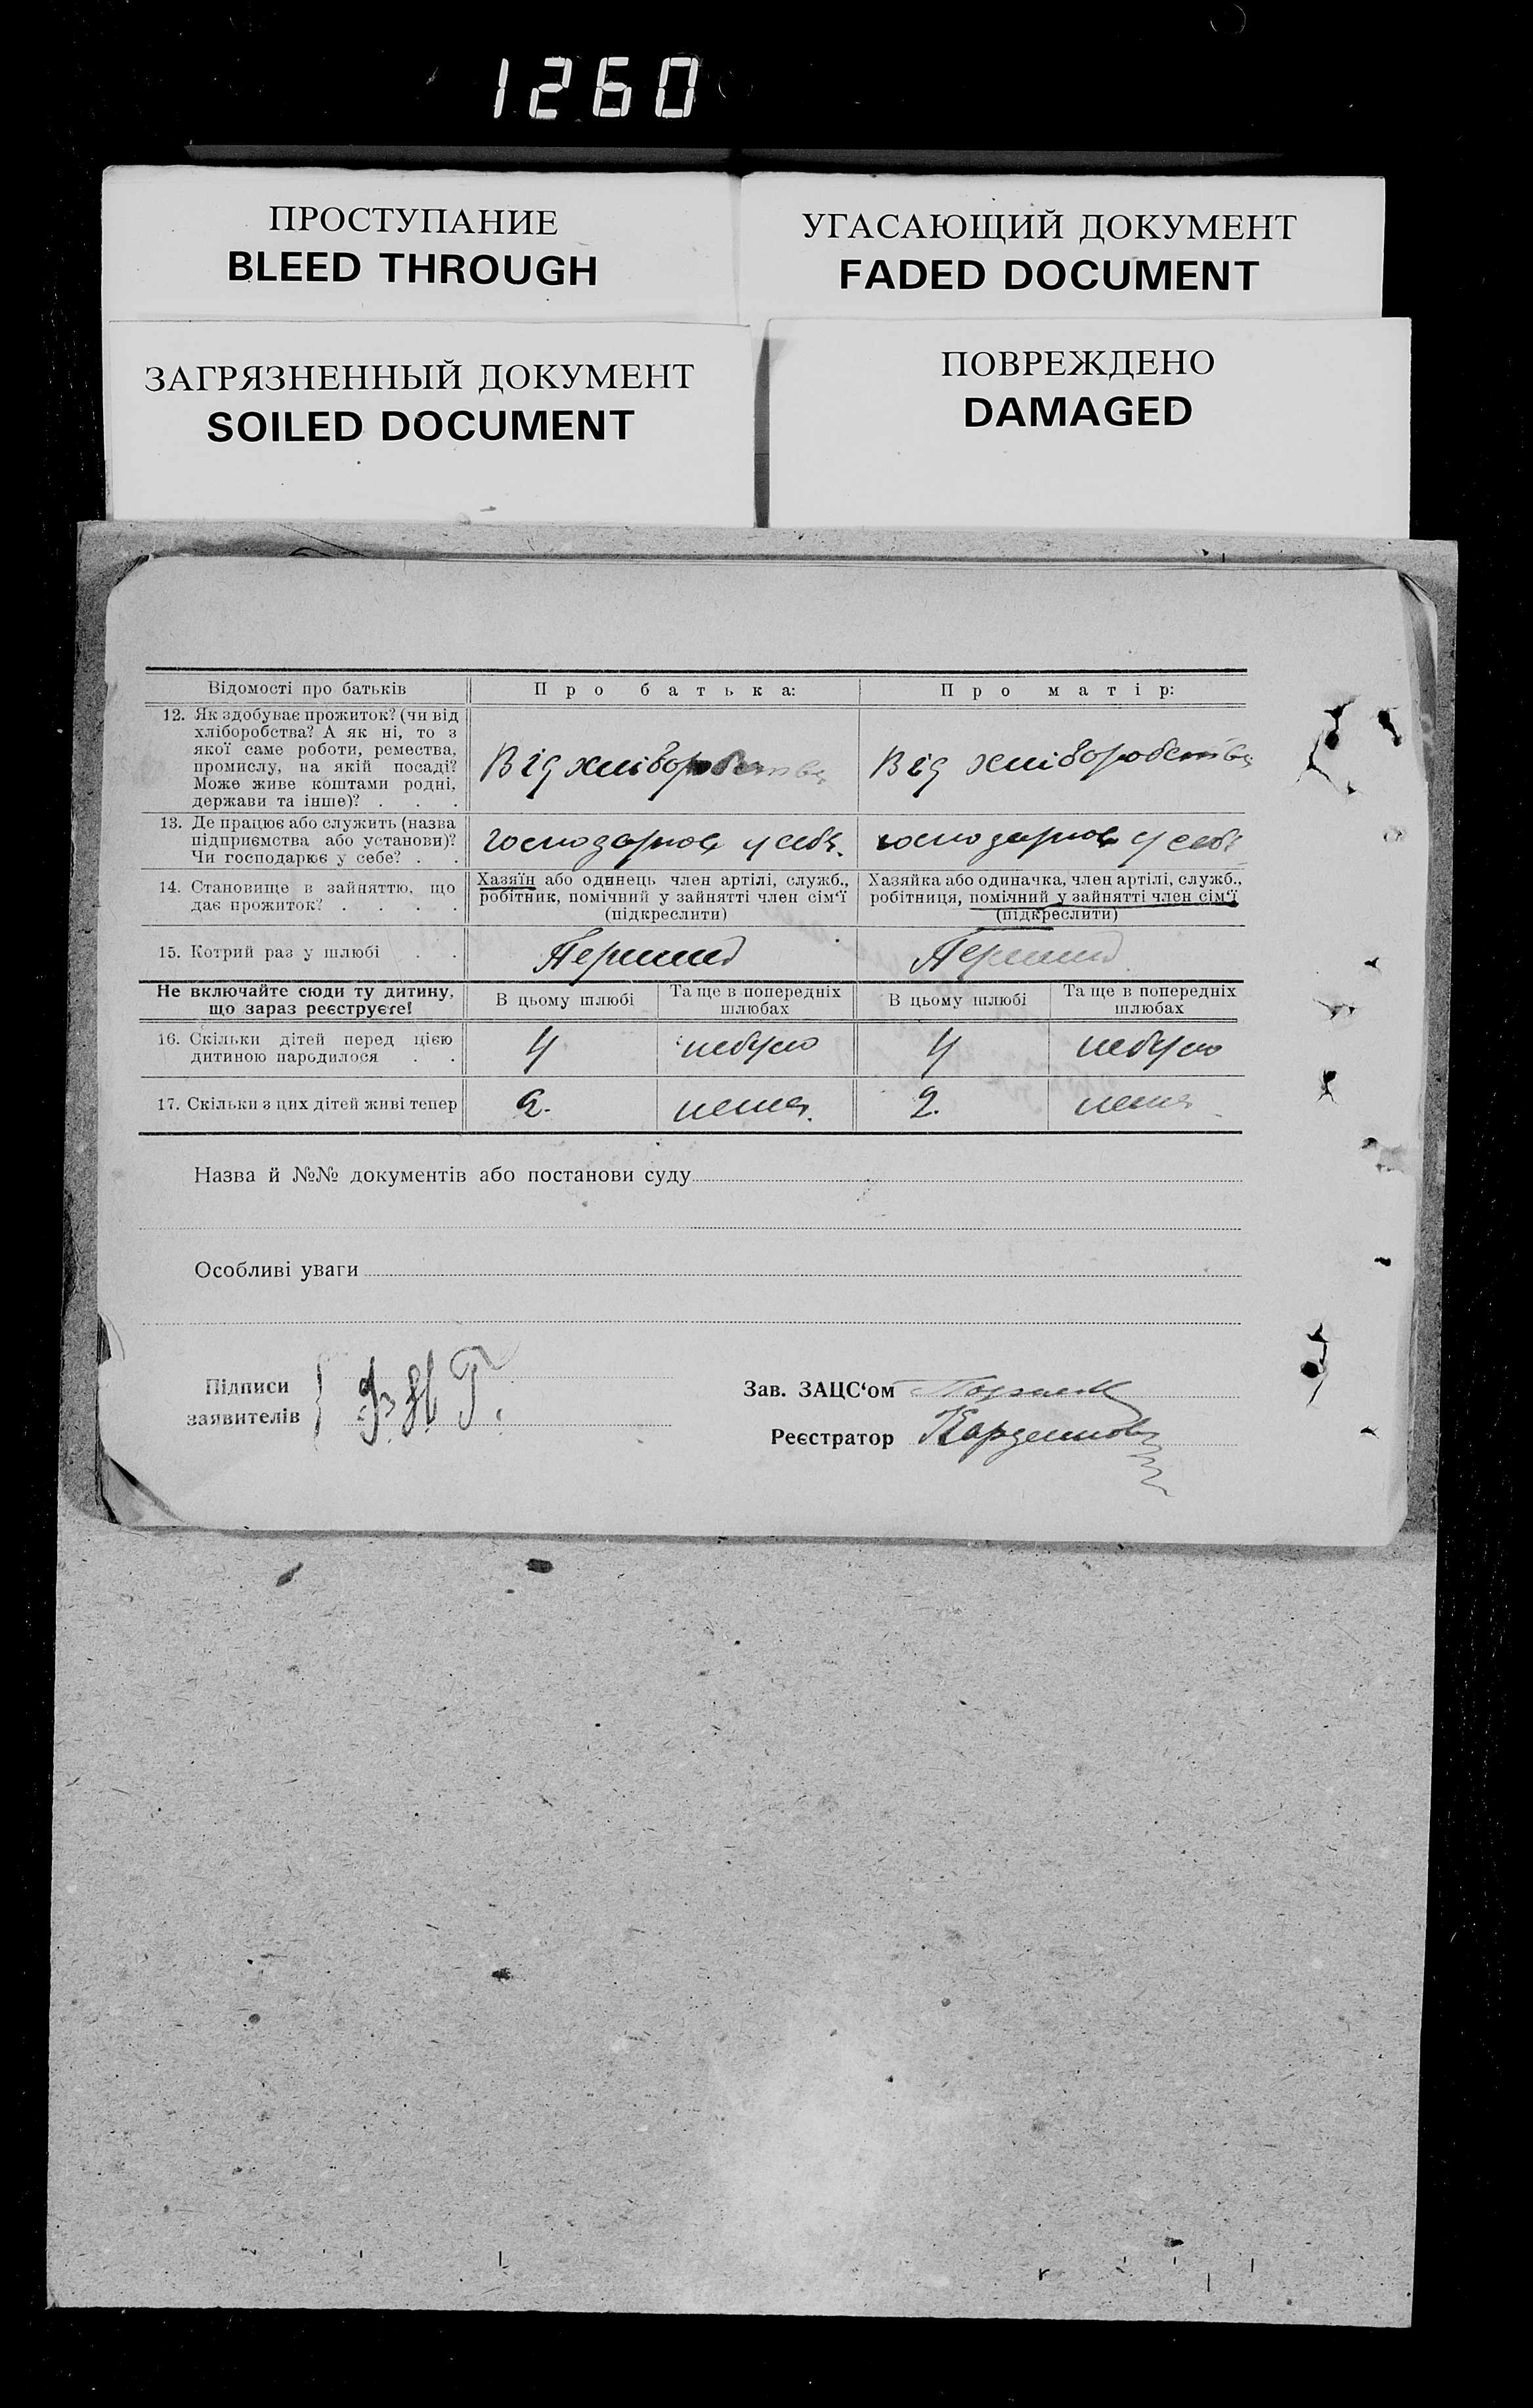 1260
ПРОСТУПАНИЕ
BLEED THROUGH
УГАСАЮЩИЙ ДОКУМЕНТ
FADED DOCUMENT
ЗАГРЯЗНЕННЫЙ ДОКУМЕНТ
SOILED DOCUMENT
ПОВРЕЖДЕНО
DAMAGED
Відомості про батьків
Про батька:
Про матір:
12. Як здобуває прожиток? (чи від
хліборобства? А як ні, то з
якої саме роботи, ремества,
промислу, на якій посаді?
Може живе коштами родні,
держави та інше)? . . .
Від хліборобства
Від хліборобства
13. Де працює або служить (назва
підприємства або установи)?
Чи господарює у себе? . .
господарює у себе.
господарює у себе
14. Становище в зайняттю, що
дає прожиток? . . . .
Хазяїн або одинець член артілі, служб.,
робітник, помічний у зайнятті член сім'ї
(підкреслити)
Хазяйка або одиначка, член артілі, служб.,
робітниця, помічний у зайнятті член сім'ї
(підкреслити)
15. Котрий раз у шлюбі . .
Перший
Перший
Не включайте сюди ту дитину,
що зараз реєструєте!
В цьому шлюбі
Та ще в попередніх
шлюбах
В цьому шлюбі
Та ще в попередніх
шлюбах
16. Скільки дітей перед цією
дитиною народилося . .
4
небуло
4
небуло
17. Скільки з цих дітей живі тепер
2.
нема.
2.
нема
Назва й №№ документів або постанови суду
Особливі уваги
Підписи
заявителів
Зав. ЗАЦС'ом
Реєстратор